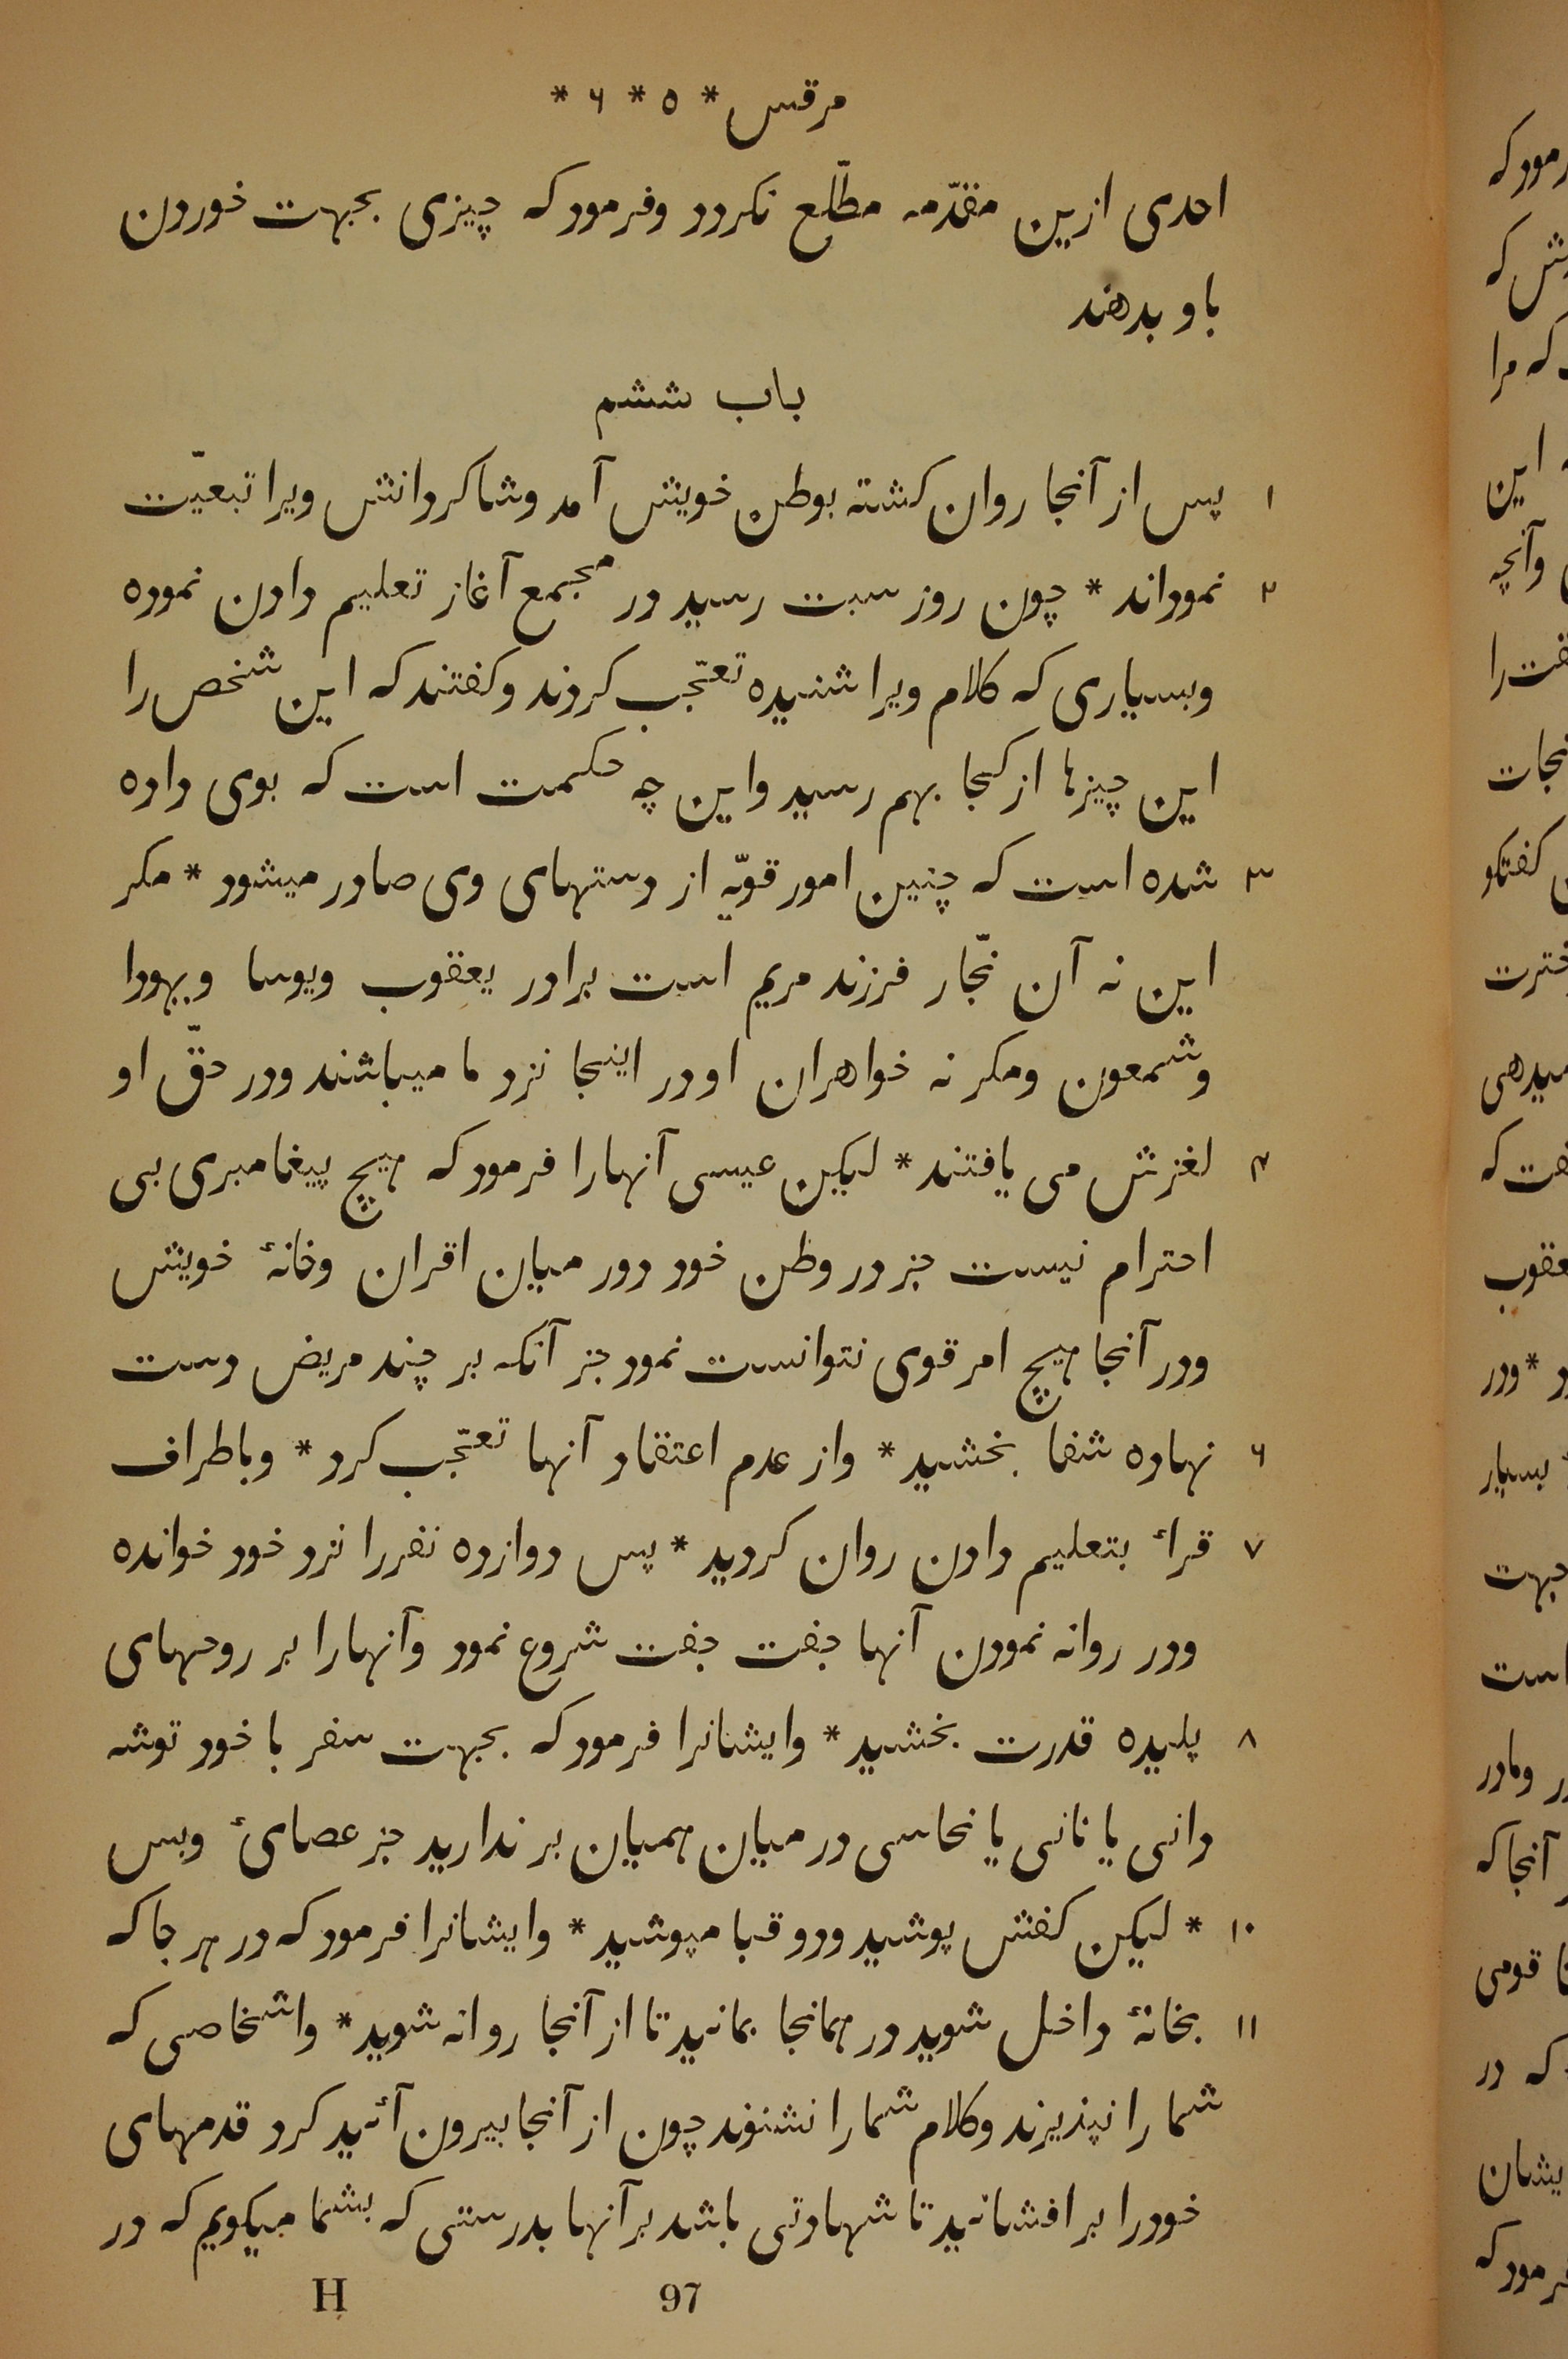 مرقس * ۵ * ۶ *
احدی ازین مقدّمه مطّلع نکردد وفرمود که چیزی بجهت خوردن
باو بدهند
باب ششم
۱ پس از آنجا روان کشته بوطن خویش آمد وشاکردانش ویرا تبعیّت
۲ نموداند * چون روز سبت رسید در مجمع آغاز تعلیم دادن نموده
وبسیاری که کلام ویرا شنیده تعجّب کردند وکفتند که این شخص را
این چیزها از کجا بهم رسید واین چه حکمت است که بوی داده
۳ شده است که چنین امور قویّه از دستهای وی صادر میشود * مکر
این نه آن نجّار فرزند مریم است برادر یعقوب ویوسا ویهودا
وشمعون ومکر نه خواهران او در اینجا نزد ما میباشند ودر حقّ او
۴ لغزش می یافتند * لیکن عیسی آنهارا فرمود که هیچ پیغامبری بی
احترام نیست جز در وطن خود ودر میان اقران وخانهٔ خویش
ودر آنجا هیچ امر قوی نتوانست نمود جز آنکه بر چند مریض دست
۶ نهاده شفا بخشید * واز عدم اعتقاد آنها تعجّب کرد * وباطراف
۷ قراٴ بتعلیم دادن روان کردید * پس دوازده نفررا نزد خود خوانده
ودر روانه نمودن آنها جفت جفت شروع نمود وآنهارا بر روحهای
۸ پلیده قدرت بخشید * وایشانرا فرمود که بجهت سفر با خود توشه
دانی یا نانی یا نحاسی در میان همیان بر ندارید جز عصایٔ وبس
۱۰ * لیکن کفش پوشید ودو قبا مپوشید * وایشانرا فرمود که در هر جا که
۱۱ بخانهٔ داخل شوید در همانجا بمانید تا از آنجا روانه شوید * واشخاصی که
شما را نپذیرند وکلام شما را نشنوند چون از آنجا بیرون آئید کرد قدمهای
خودرا بر افشانید تا شهادتی باشد بر آنها بدرستی که بشما میکویم که در
97 H